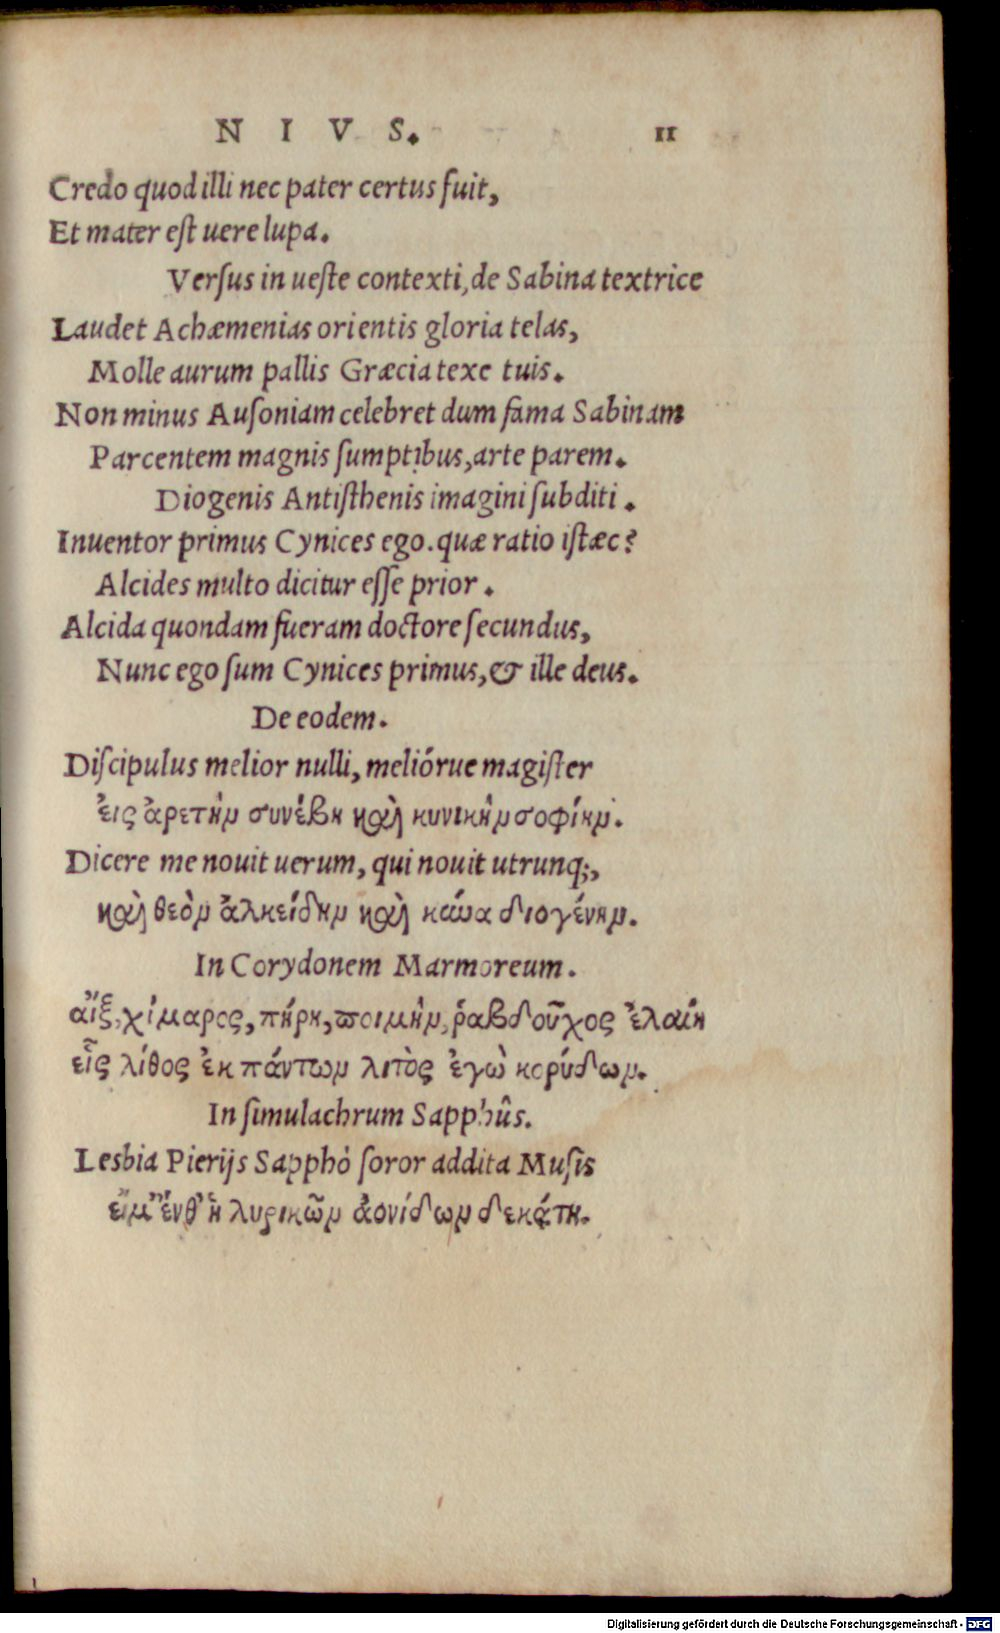 N I V S. 11
Credo quod illi nec pater certus fuit,
Et mater eſt uere lupa.
Verſus in ueſte contexti, de Sabina textrice
Laudet Achæmenias orientis gloria telas,
Molle aurum pallis Græcia texe tuis.
Non minus Auſoniam celebret dum fama Sabinam
Parcentem magnis ſumptibus, arte parem.
Diogenis Antiſthenis imagini ſubditi.
Inuentor primus Cynices ego. quæ ratio iſtæc?
Alcides multo dicitur eſſe prior.
Alcida quondam fueram doctore ſecundus,
Nunc ego ſum Cynices primus, & ille deus.
De eodem.
Diſcipulus melior nulli, meliórue magiſter
ἐις ἀρετὴν συνέβη καὶ κυνικὴν σοφίην.
Dicere me nouit uerum, qui nouit utrunq;,
καὶ θεὸν ἀλκείδην καὶ κύνα διογένην.
In Corydonem Marmoreum.
αἲξ, χίμαρος, πήρη, ποιμὴν, ῥαβδοῦχος ἐλαίη
εἷς λίθος ἐκ πάντων λιτὸς ἐγὼ κορύδων.
In ſimulachrum Sapphûs.
Lesbia Pierijs Sapphò ſoror addita Muſis
εἴμ' ἔνθ' ἡ λυρικῶν ἀονίδων δεκάτη.
Digitalisierung gefördert durch die Deutsche Forschungsgemeinschaft - DFG